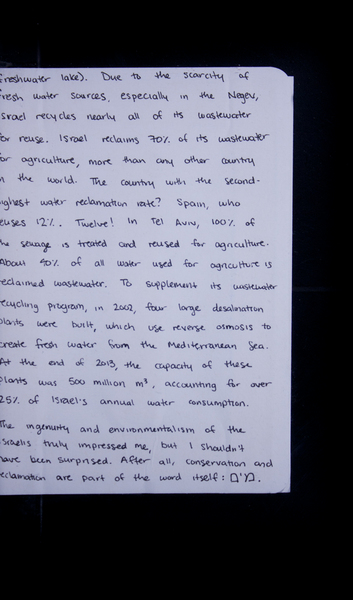 freshwater lake). Due to the scarcity of
fresh water sources, especially in the Negev,
Israel recycles nearly all of its wastewater
for reuse. Israel reclaims 70% of its wastewater
for agriculture, more than any other country
in the world. The country with the second-
highest water reclamation rate? Spain, who
reuses 12%. Twelve! In Tel Aviv, 100% of
the sewage is treated and reused for agriculture.
About 50% of all water used for agriculture is
reclaimed wastewater. To supplement its wastewater
recycling program, in 2002, four large desalination
plants were built, which use reverse osmosis to
create fresh water from the Mediterranean Sea.
At the end of 2013, the capacity of these
plants was 500 million m³, accounting for over
25% of Israel's annual water consumption.
The ingenuity and environmentalism of the
Israelis truly impressed me, but I shouldn't
have been surprised. After all, conservation and
reclamation are part of the word itself: מים.